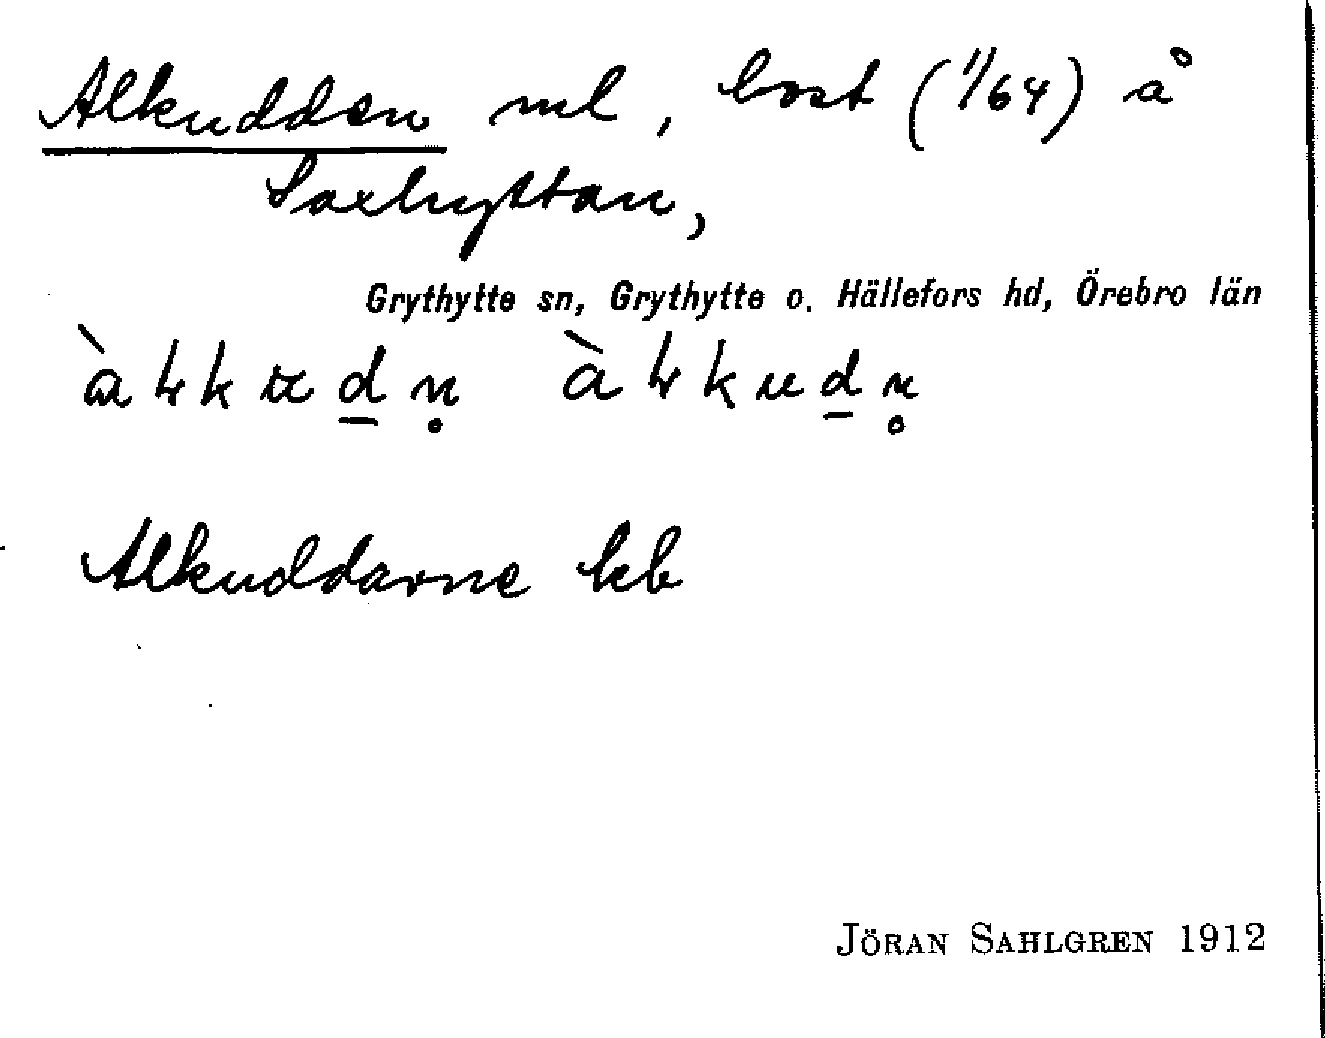 Alkudden ml, bost (1/64) å
Saxhyttan,
Grythytte sn, Grythytte o. Hällefors hd, Örebro län
Alkuddarne kb
JÖRAN SAHLGREN 1912